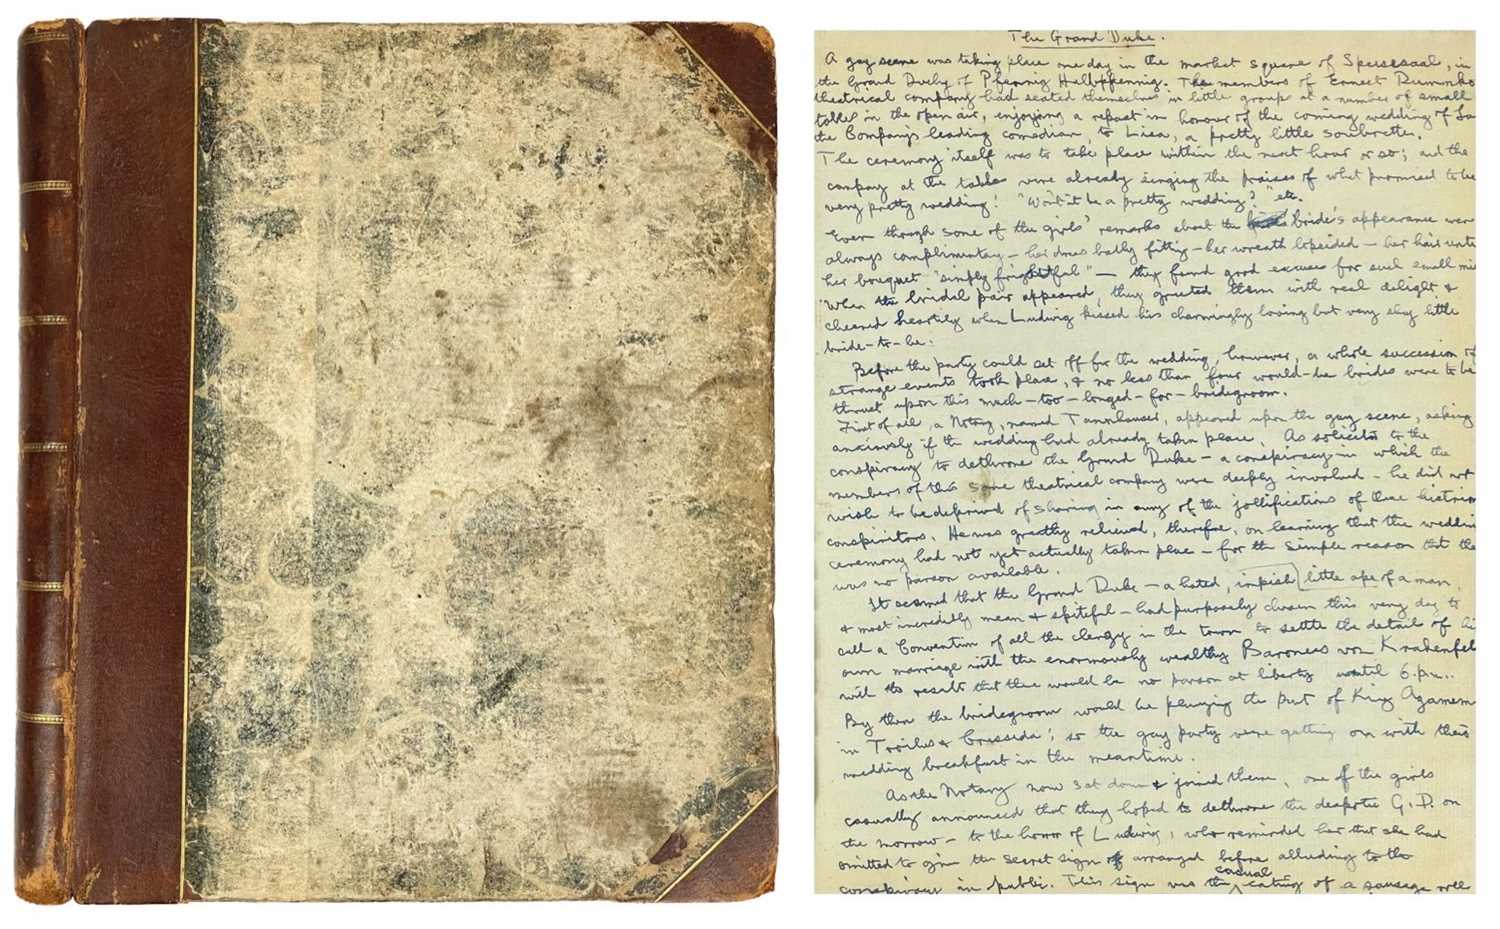 The Grand Duke.
A gay scene was taking place one day in the market square of Speisesaal, in
the Grand Duchy of Pfennig Halbpfennig. The members of Ernest Dummko
theatrical company had seated themselves in little groups at a number of small
tables in the open air, enjoying a repast in honour of the coming wedding of Lu
the Company's leading comedian, to Lisa, a pretty little soubrette.
The ceremony itself was to take place within the next hour or so; and the
company at the tables were already singing the praises of what promised to be
very pretty wedding! "Won't it be a pretty wedding?" etc.
Even though some of the girls' remarks about the bride's appearance were
always complimentary – her dress badly fitting – her wreath lopsided – her hair unti
her bouquet "simply frightful" – they found good excuses for such small mi
When the bridal pair appeared, they greeted them with real delight &
cheered heartily when Ludwig kissed his charmingly loving but very shy little
bride-to-be.
Before the party could set off for the wedding, however, a whole succession of
strange events took place, & no less than four would-be brides were to be
thrust upon this much-too-longed-for-bridegroom.
First of all, a Notary, named Tannhauser, appeared upon the gay scene, asking
anxiously if the wedding had already taken place. As solicitor to the
conspiracy to dethrone the Grand Duke – a conspiracy in which the
members of the same theatrical company were deeply involved – he did not
wish to be deprived of sharing in any of the jollifications of these histrion
conspirators. He was greatly relieved, therefore, on learning that the weddin
ceremony had not yet actually taken place – for the simple reason that the
was no parson available.
It seemed that the Grand Duke – a hated, impish little ape of a man,
& most incredibly mean & spiteful – had purposely chosen this very day to
call a Convention of all the clergy in the town to settle the detail of hi
own marriage with the enormously wealthy Baroness von Krakenfel
with the result that there would be no parson at liberty until 6.p.m..
By then the bridegroom would be playing the part of King Agamem
in Troilus & Cressida; so the gay party were getting on with their
wedding breakfast in the meantime.
As the Notary now sat down & joined them, one of the girls
casually announced that they hoped to dethrone the despotic G.D. on
the morrow – to the horror of Ludwig, who reminded her that she had
omitted to give the secret sign arranged before alluding to the
conspiracy in public. This sign was the casual eating of a sausage roll